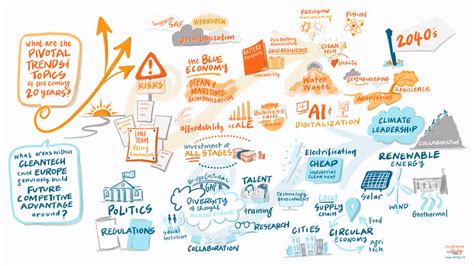 What are the
PIVOTAL
TRENDS & TOPICS
of the coming
20 YEARS?
RISKS
LONG TERM
SAF
HYDROGEN
the BLUE
ECONOMY
OCEAN &
MARITIME
decarbonization
BATTERY
GRID RESILIENCE
FUSION
PRECISION
CLEAN
TECH
HEALTH
2040's
Water
Waste
GEOENGINEERING
Adaptation
Resilience
affordability
SCALE
BUSINESS
CASES
AI &
DIGITALIZATION
investment at
ALL STAGES
CLIMATE
LEADERSHIP
COLLABORATION
What areas within
CLEANTECH
could EUROPE
genuinely build
FUTURE
COMPETITIVE
ADVANTAGE
around?
POLITICS
REGULATIONS
Social
inclusion
GAP
DIVERSITY
of thought
COLLABORATION
TALENT
training
RESEARCH
Electrification
CHEAP
industrial clean heat
Local
SUPPLY
chain
CITIES
CIRCULAR
ECONOMY
Agri
tech
RENEWABLE
ENERGY
Solar
WIND
Geothermal